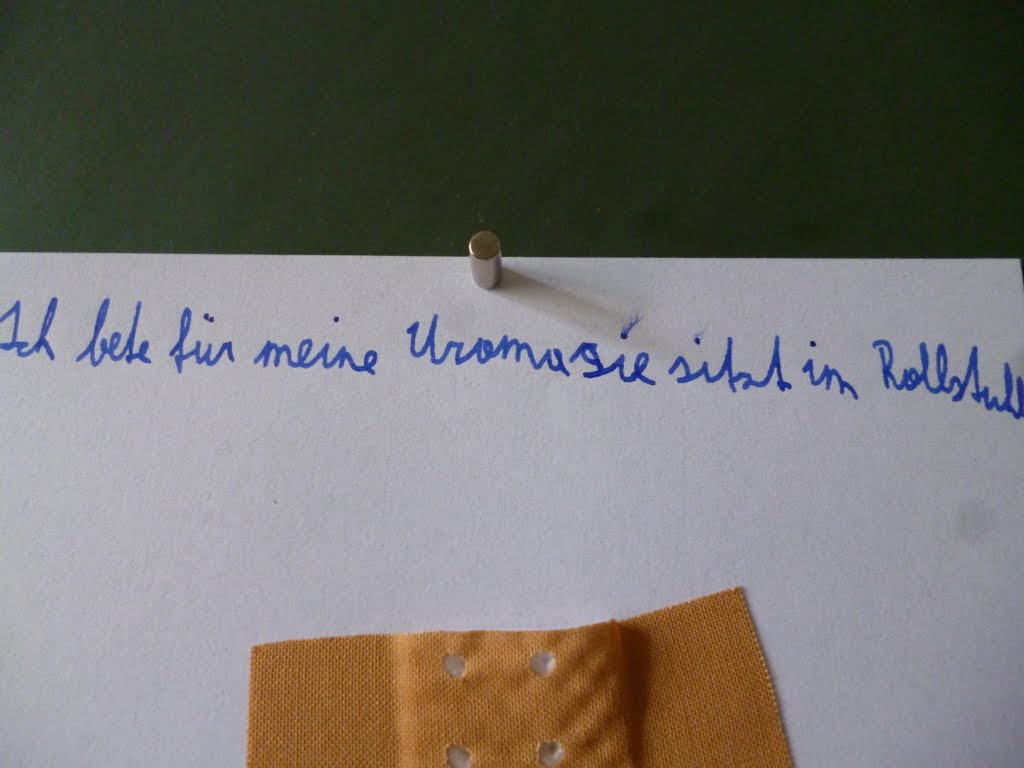 Ich bete für meine Uroma sie sitzt im Rollstuhl